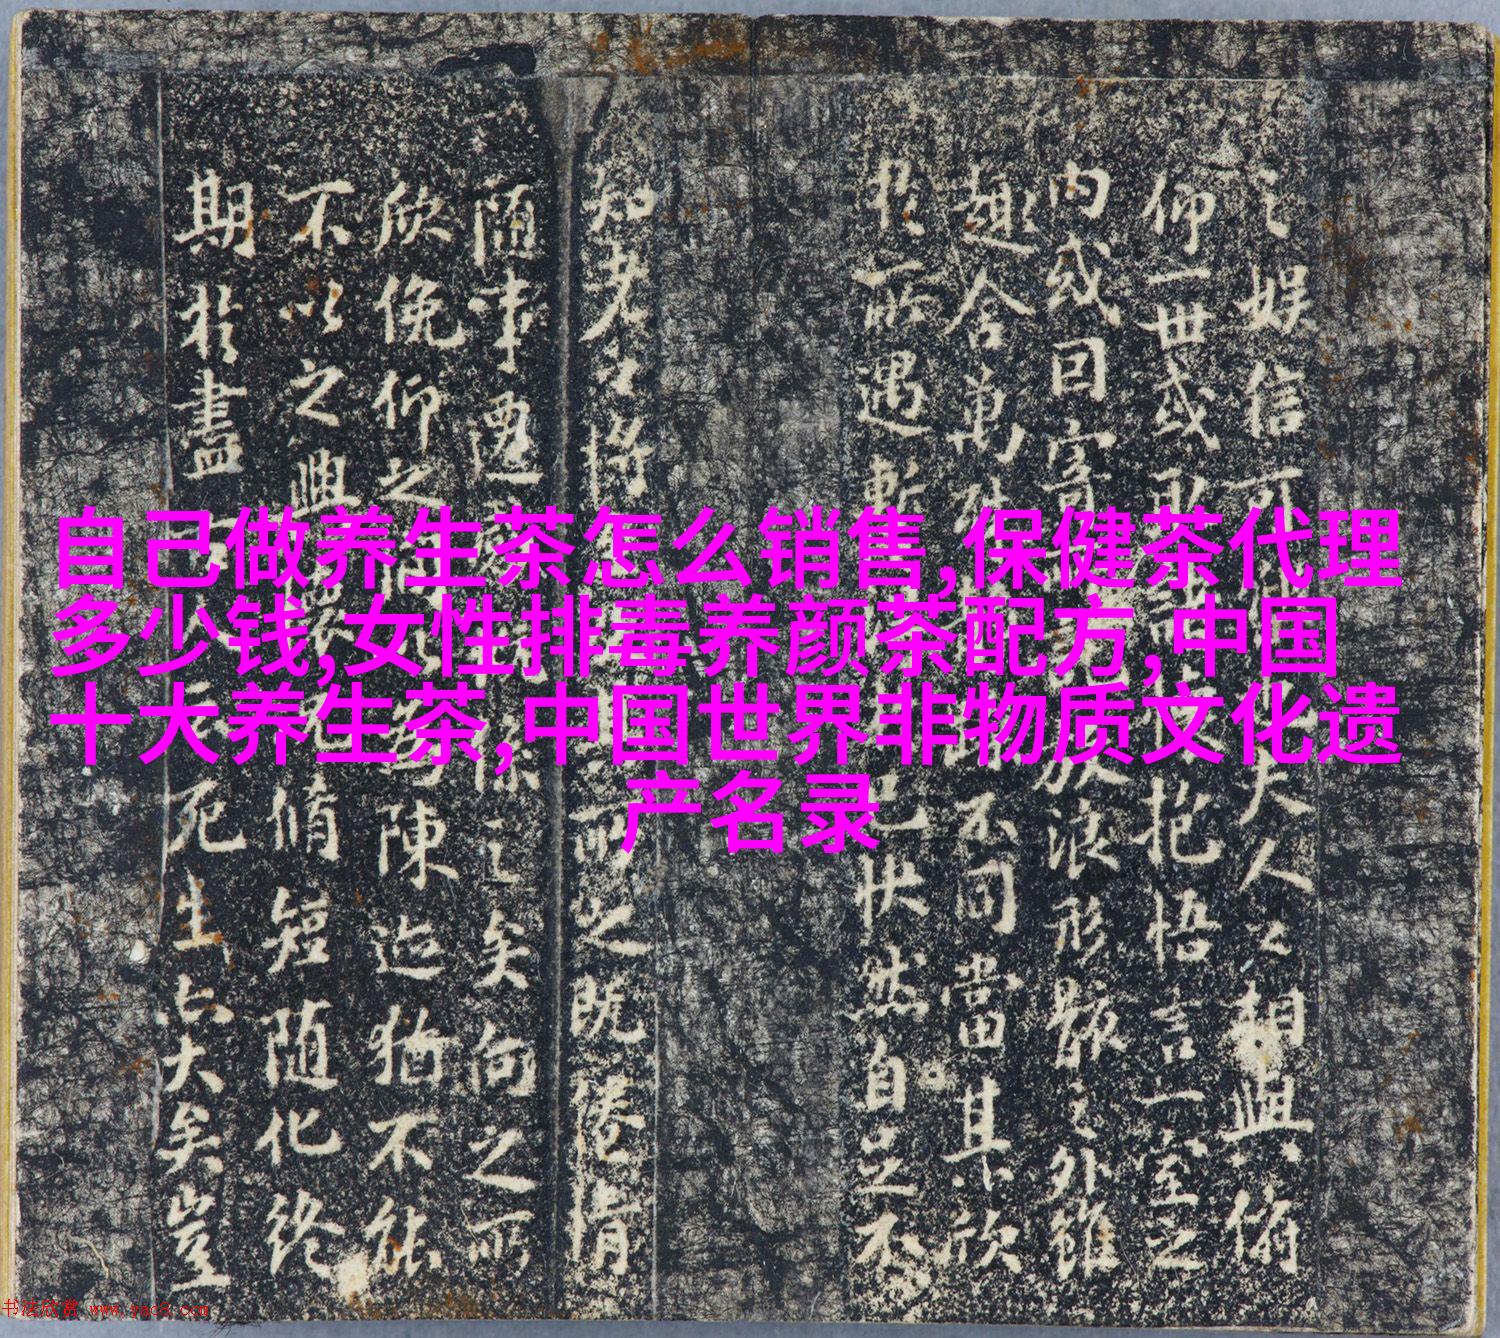 自己做养生茶怎么销售,保健茶代理
多少钱,女性排毒养颜茶配方,中国
十大养生茶,中国世界非物质文化遗
产名录
之娱信可夫人之相與俯
仰一世或取抱悟言一室之
内或因寄放浪形骸之外雖
趣舍萬殊不同當其欣
於所遇暫己快然自足不
知老之將之既惓情
随事遷之矣向之所
欣俛仰之陳迹猶不能
不以之興懷脩短随化終
期於盡死生亦大矣豈
书法欣赏 www.yac8.com